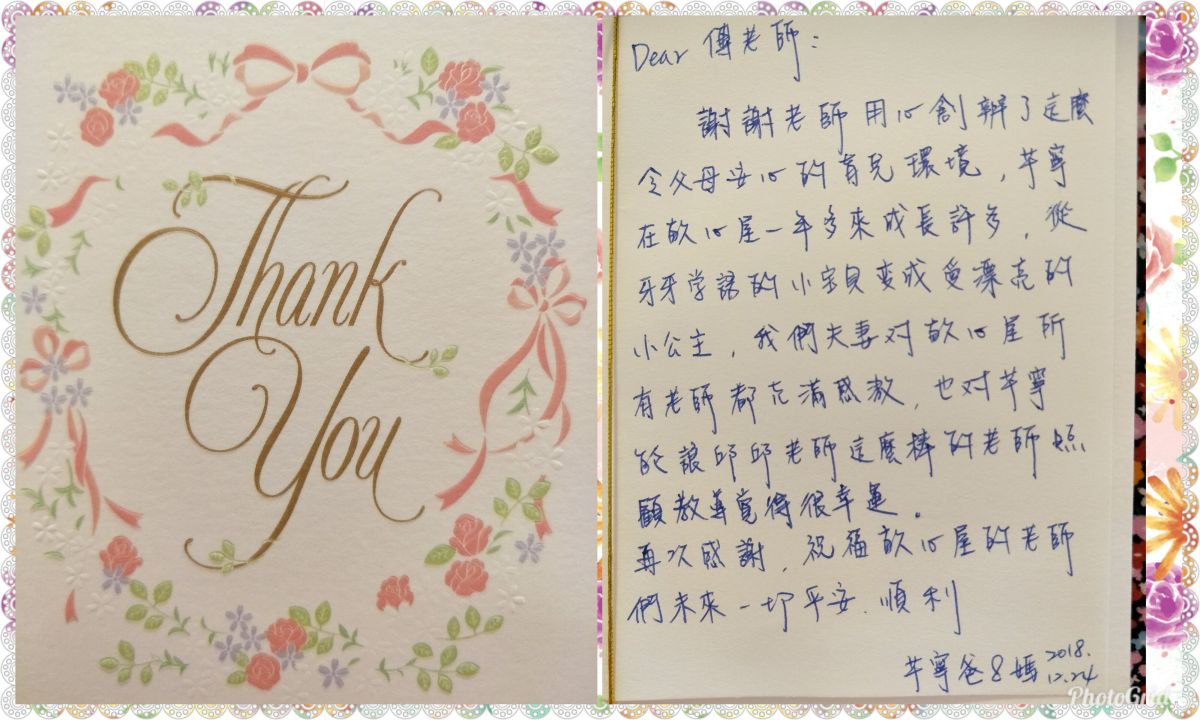 Thank
You
Dear 傅老師：
謝謝老師用心創辦了這麼
令父母安心的育兒環境，芊寧
在歆心屋一年多來成長許多，從
牙牙学語的小宝貝变成爱漂亮的
小公主，我們夫妻对歆心屋所
有老師都充滿感激，也对芊寧
能讓邱邱老師這麼棒的老師照
顧教導覺得很幸運。
再次感謝，祝福歆心屋的老師
們未來一切平安．順利
芊寧爸&媽 2018.
12.24
PhotoGrid